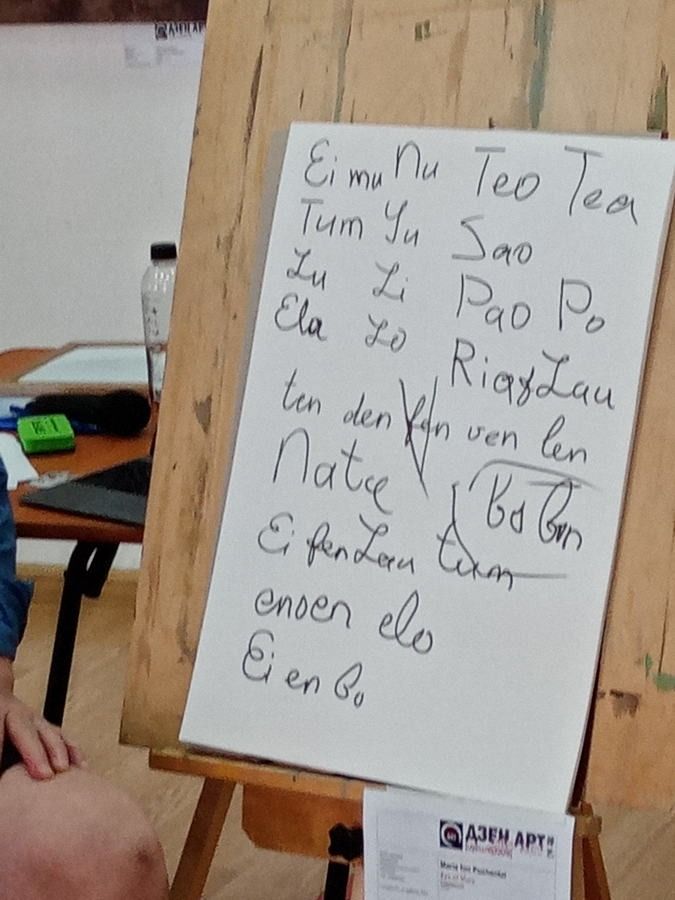 Ei mu Nu Teo Tea
Tum Yu Sao
Lu Li Pao Po
Ela Lo Riay Lau
ten den fen ven len
Natae Bo Bon
Ei fen Lau tum
enoen elo
Ei en Bo
ДЗЕН АРТ